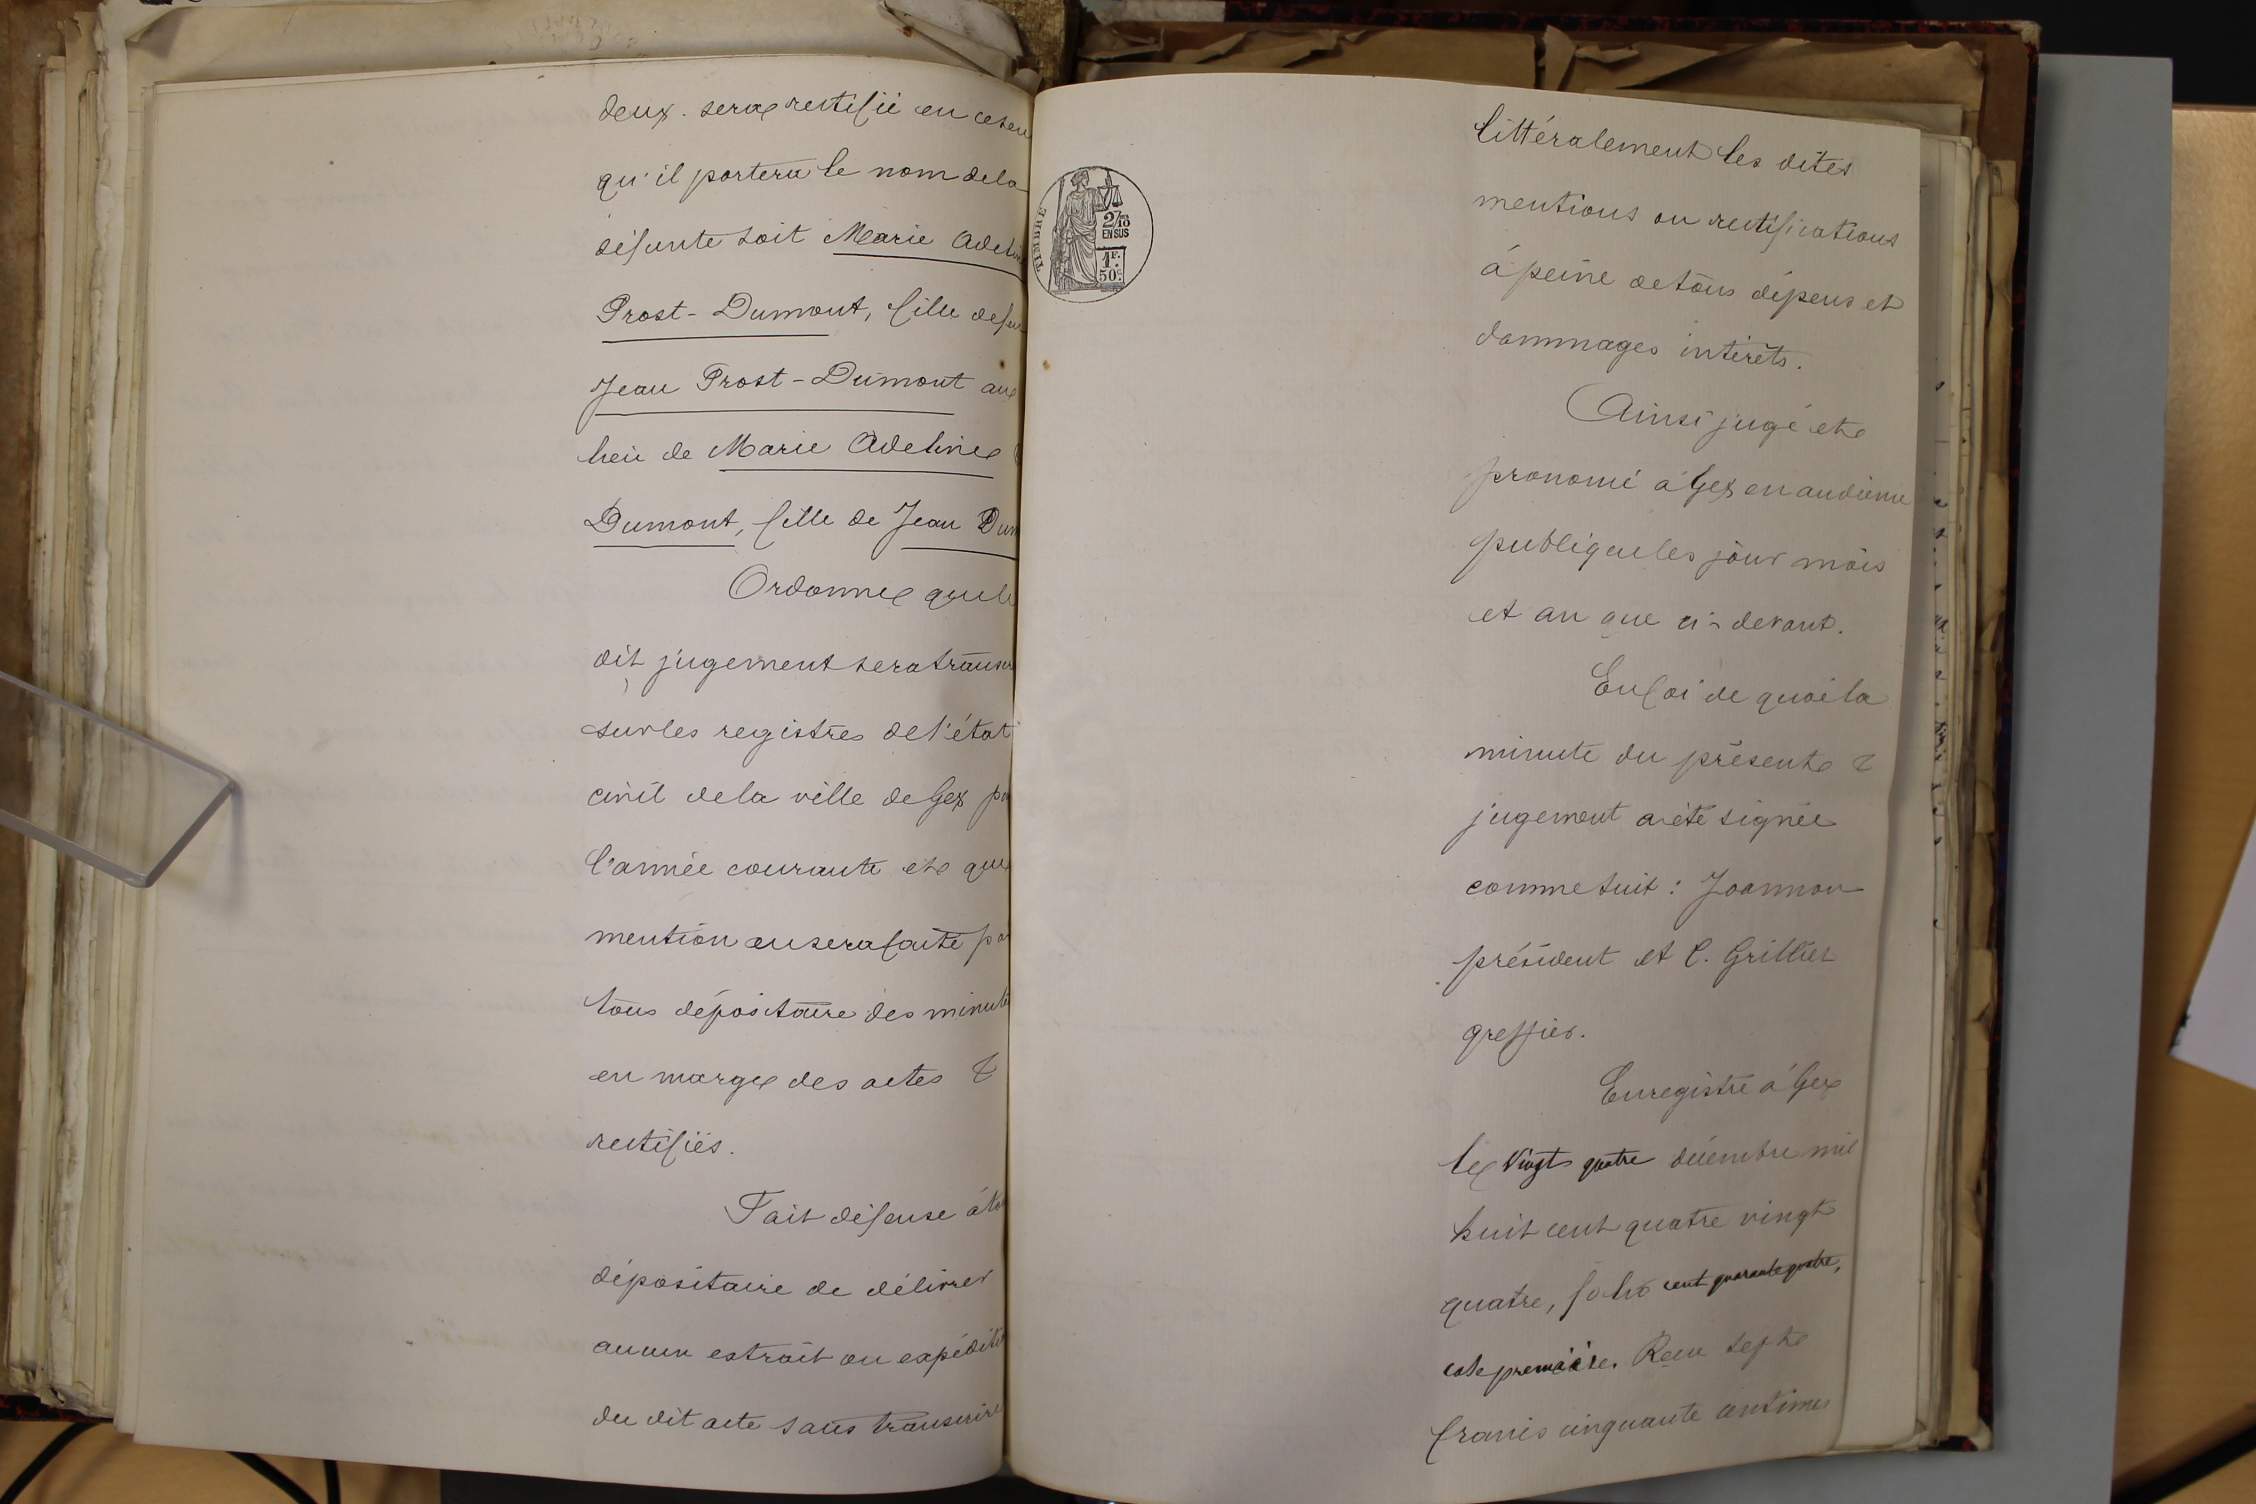 deux. sera rectifié en ce sen
qu'il portera le nom de la
défunte soit Marie Adeli
Prost-Dumont, fille de feu
Jean Prost-Dumont au
lieu de Marie Adeline
Dumont, fille de Jean Dum
Ordonne que le
dit jugement sera transcr
sur les registres de l'état
civil de la ville de Gex po
l'année courante et que
mention en sera faite pa
tous dépositaire des minute
en marge des actes
rectifiés.
Fait défense à to
dépositaire de délivrer
aucun extrait ou expéditi
du dit acte sans transcrire
TIMBRE
2/10
EN SUS
1F.
50c.
littéralement les dites
mentions ou rectifications
à peine de tous dépens et
dommages intérêts.
Ainsi jugé et
prononcé à Gex en audience
publique les jour mois
et an que ci-devant.
En foi de quoi la
minute du présent
jugement a été signée
comme suit : Joannon
président et C. Grillier
greffier.
Enregistré à Gex
le vingt quatre décembre mil
huit cent quatre vingt
quatre, folio cent quarante quatre,
case première. Reçu sept
francs cinquante centimes